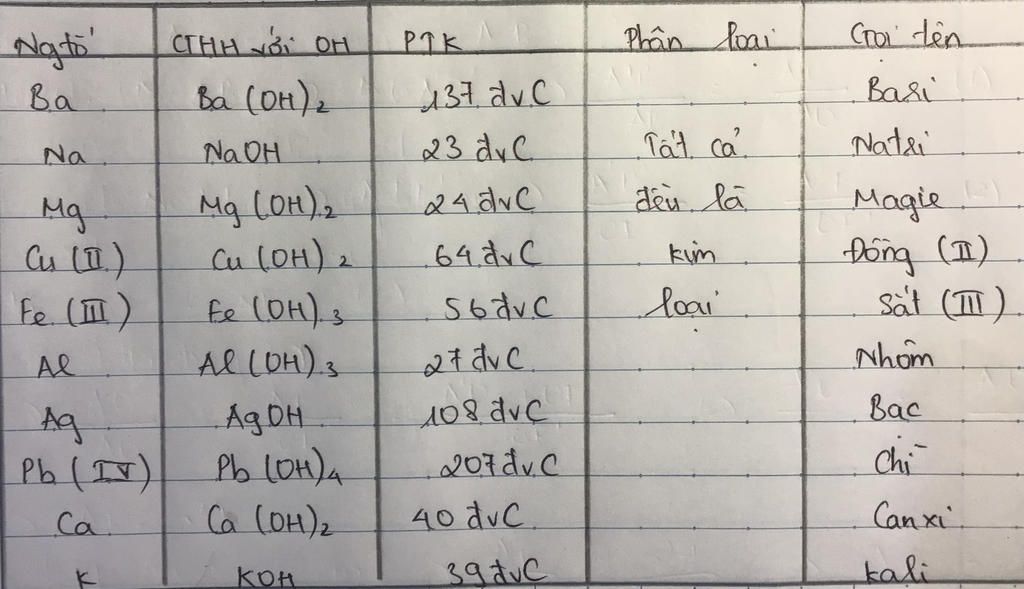 Ngtố CTHH với OH PTK Phân loại Gọi tên
Ba Ba(OH)2 137 đvC Bari
Na NaOH 23 đvC Tất cả Natri
Mg Mg(OH)2 24 đvC đều là Magie
Cu (II) Cu(OH)2 64 đvC kim Đồng (II)
Fe (III) Fe(OH)3 56 đvC loại Sắt (III)
Al Al(OH)3 27 đvC Nhôm
Ag AgOH 108 đvC Bạc
Pb (IV) Pb(OH)4 207 đvC Chì
Ca Ca(OH)2 40 đvC Canxi
K KOH 39 đvC kali